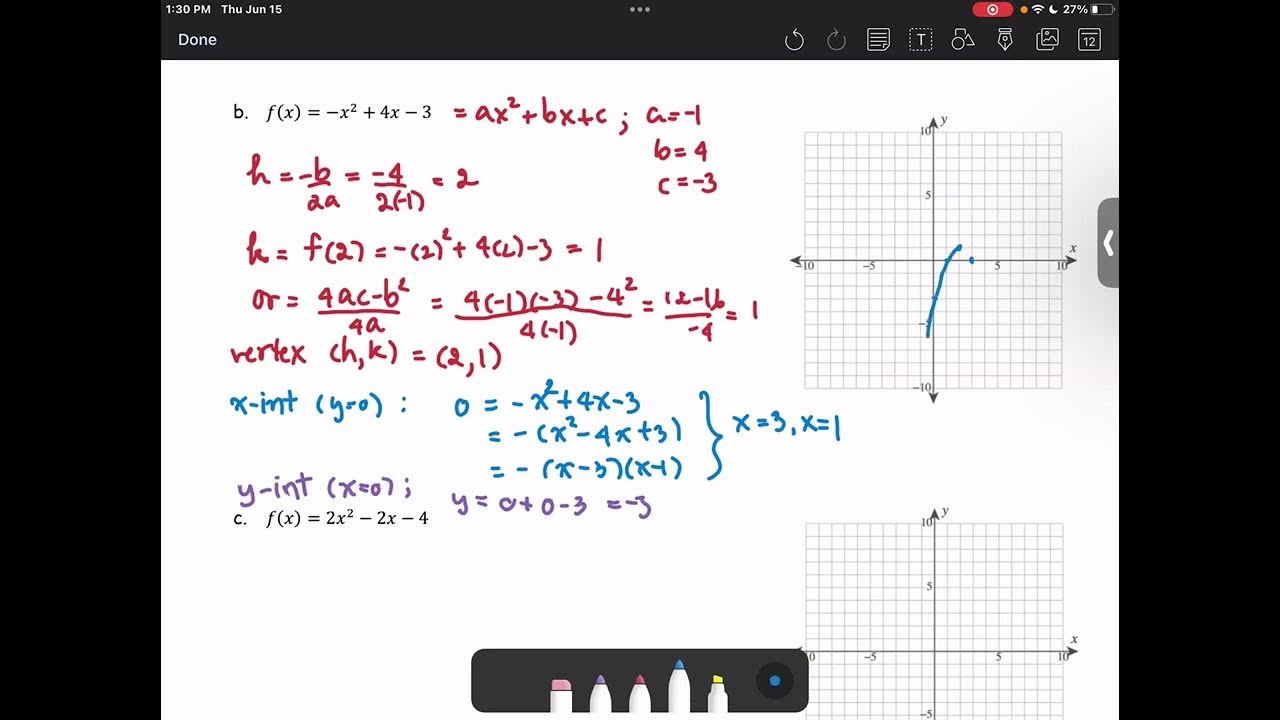 1:30 PM Thu Jun 15
27%
Done
T
12
b. f(x) = −x² + 4x − 3 = ax² + bx + c ; a = -1
b = 4
c = -3
h = -b/2a = -4/2(-1) = 2
k = f(2) = -(2)² + 4(2) - 3 = 1
or = 4ac-b²/4a = 4(-1)(-3) - 4²/4(-1) = 12-16/-4 = 1
vertex (h,k) = (2,1)
x-int (y=0) : 0 = -x² + 4x - 3
= -(x² - 4x + 3)
= - (x-3)(x-1)
} x = 3, x = 1
y-int (x=0) ; y = 0 + 0 - 3 = -3
c. f(x) = 2x² − 2x − 4
y
10
5
x
−10 −5 5 10
−5
−10
y
10
5
x
0 −5 5 10
−5